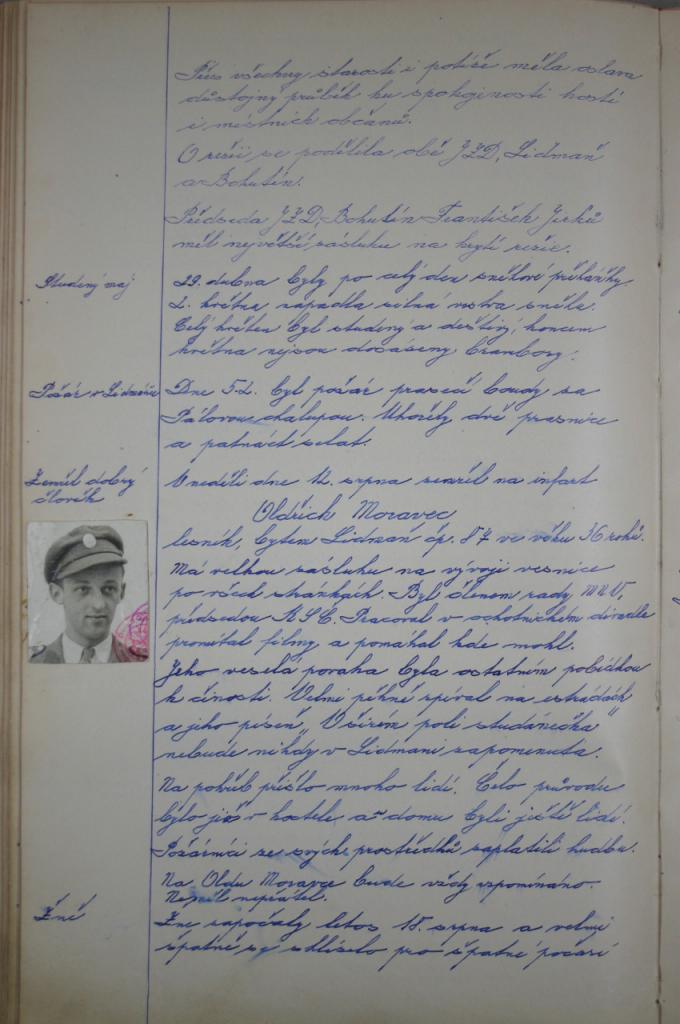 Přes všechny starosti i potíže měla oslava
důstojný průběh ku spokojenosti hostí
i místních občanů.
O režii se podělila obě JZD, Lidmaň
a Bohutín.
Předseda JZD, Bohutín František Jirků
měl největší zásluhu na krytí režie.
Studený máj
29. dubna byly po celý den sněhové přeháňky
2. května napadla silná vrstva sněhu.
Celý květen byl studený a deštivý, koncem
května nejsou dosázeny brambory.
Požár v Lidmani
Dne 5.2. byl požár prasečí boudy za
Pálovou chalupou. Uhořely dvě prasnice
a patnáct selat.
Zemřel dobrý
člověk
V neděli dne 12. srpna zemřel na infart
Oldřich Moravec
lesník, bytem Lidmaň čp. 87 ve věku 36 roků.
Má velkou zásluhu na vývoji vesnice
po všech stránkách. Byl členom rady MNV,
předsedou KSČ. Pracoval v ochotnickém divadle
promítal filmy a pomáhal kde mohl.
Jeho veselá povaha byla ostatním pobídkou
k činosti. Velmi pěkně zpíval na estrádách
a jeho píseň „V širém poli studánečka"
nebude nikdy v Lidmani zapomenuta.
Na pohřeb přišlo mnoho lidí. Čelo průvodu
bylo již v kostele a z domu byli ještě lidi.
Požárníci ze svých prostředků zaplatili hudbu.
Na Oldu Moravce bude vždy vzpomínáno.
Neměl nepřátel.
Žně
Žne započaly letos 15. srpna a velmi
špatně se sklízelo pro špatné počasí